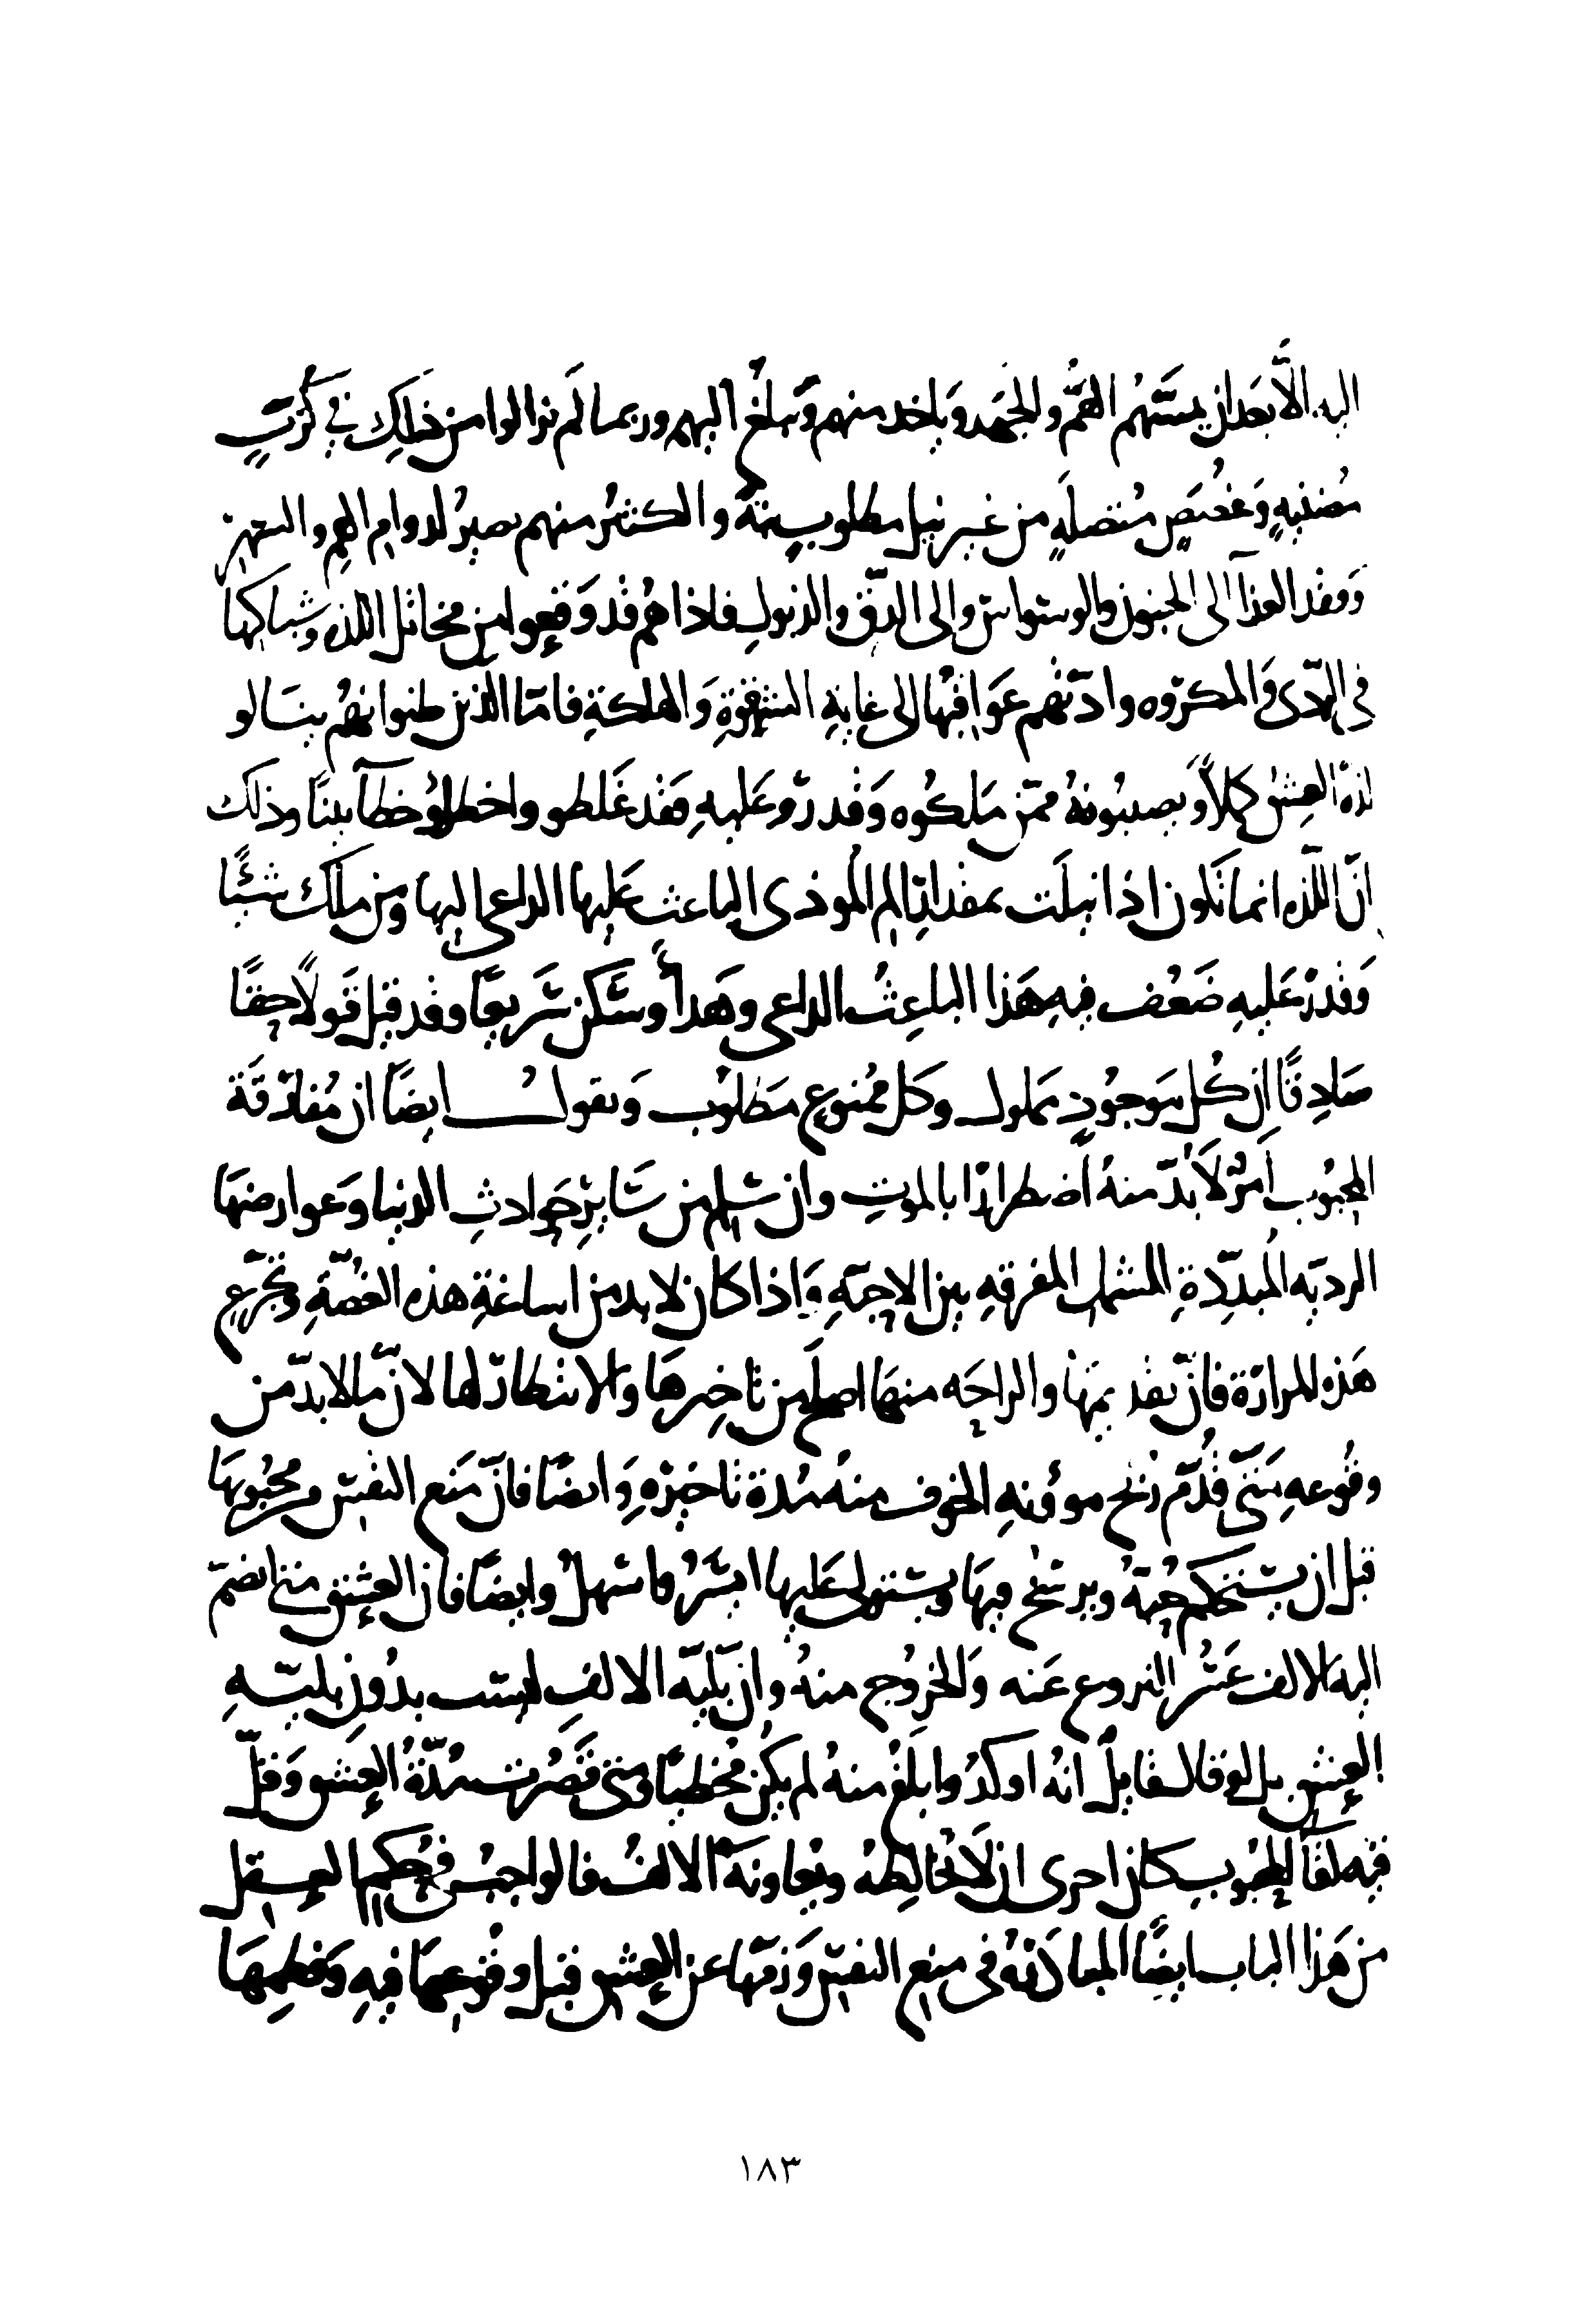 اليه الّا بَعد ان يمسّهُم الهمُّ والجَهد وَياخد منهم وَيبلغُ اليهم وربما لَم يزالوا من ذلِك في كُرَبٍ
مُضنيهٍ وَغُصَصٍ مُتصلَهٍ من غير نيل مطلوبٍ بتهً والكثيرُ منهم يصيرُ لدوام الهم والسهر
وَفقد الغذآ الى الجنون والوسواس والى الدّق والذبولِ فاذا هُم قد وَقعوا من مخاتل اللذه وشباكها
في الرّدى وَالمكرّوه وادّتهم عَواقبُها الى غايةِ الشقوَةِ وَالهلكةِ فامّا الذين ظنوا انهُم ينَالو
لذهَ العِشق كملاً وَيصيبُونهُ ممّن مَلكُوه وَقدرُو عَليهِ فقد غَلطو واخطاؤ خطآً بينًا وذلك
انّ اللّذه انما تَكون اذا نيلَت بمقدار الم المُوذى الباعثِ عَليها الداعى اليها ومن ملَك شيئًا
وَقدرَ عَليهِ ضَعُف فيهِ هَذا الباعِثُ الداعى وهَدأ وسَكن سَريعًا وقد قيل قَولاً حقًا
صَادِقًا ان كُل مَوجُودٍ مملول وكل ممُنوعٍ مَطلوُب وَنقول ايضًا ان مُفارَقَة
المحبُوب أمرٌ لاَ بُدّ منهُ اضطرارًا بالموتِ وان سَلم من سَايرِ حَوادثِ الدنيا وَعوارضهَا
الرديّه المُبدِّدةِ للشمل المفرقهِ بين الاحبّهِ وَاذا كان لا بد من اساغةِ هذه الغُصّةِ وتجرّع
هَذه المرارَة فانّ تقديمهَا والراحَه منهَا اصلَح من تاخِيرهَا والانتظارَ لها لانّ ما لا بدّ من
وقُوعهِ مَتَى قُدّم زُيح موؤنهِ الخوف منهُ مُدة تاخيرُهِ وَايضًا فانّ مَنع النفس من محبُوبهَا
قبل ان يَستحكم حُبّهُ ويرسَخ فيهَا ويستولى عَليها ايسَرُ واسهلُ وايضًا فان العِشق متى انضمّ
اليه الالف عَسُر النزوع عَنه وَالخرُوج منهُ وانّ بَليّه الالفِ ليست بدُون بليّةِ
العِشقِ بل لو قال قايلٌ انهُ اوكدُ وابلغُ منهُ لم يكُن مُخطيًا ومتى قَصُرت مُدّةُ العِشق وَقلّ
فيه لقآ المحبُوب كان احرى ان لاَ تخالِطهُ وتعاونَهُ الالفُ فالواجبُ في حُكمِ العقل
من هَذا الباب ايضًا المبادَرَةُ فى منع النفس وَزمّها عن العِشق قبل وقوعهَا فيهِ وَفطمِهَا
١٨٣